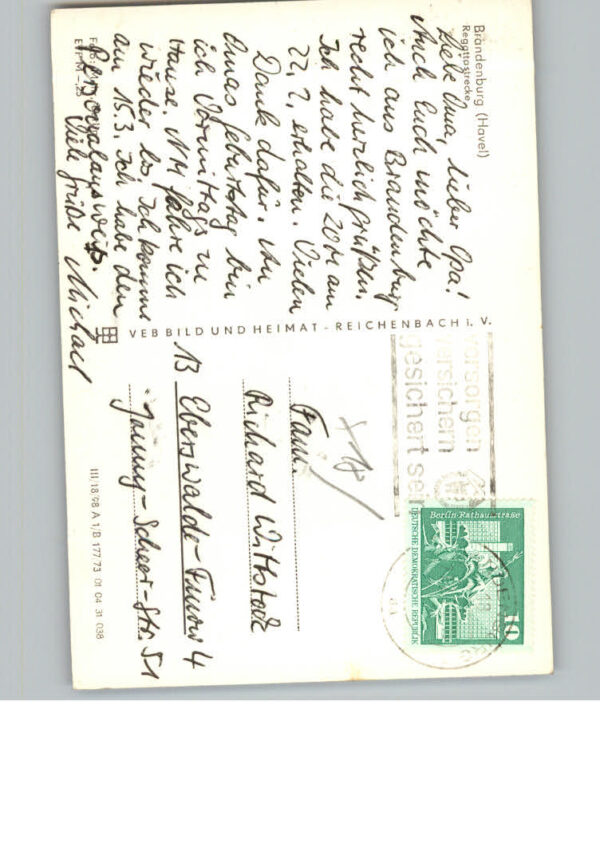 Brandenburg (Havel)
Regattastrecke
Liebe Oma, lieber Opa!
Auch Euch möchte
ich aus Brandenburg
recht herzlich grüßen.
Ich habe die 20M am
22.2. erhalten. Vielen
Dank dafür. An
Omas Geburtstag bin
ich Vormittags zu
Hause. NM fahre ich
wieder los. Ich komme
am 15.3. Ich habe den
Personalausweis.
Viele Grüße Michael
VEB BILD UND HEIMAT - REICHENBACH i. V.
vorsorgen
versichern
gesichert sei
Berlin-Rathausstraße
DEUTSCHE DEMOKRATISCHE REPUBLIK
10
Fam.
Richard Wittstock
13 Eberswalde-Finow 4
Jonny-Scheer-Str. 51
III/18/98 A 1/B 177/73 01 04 31 038